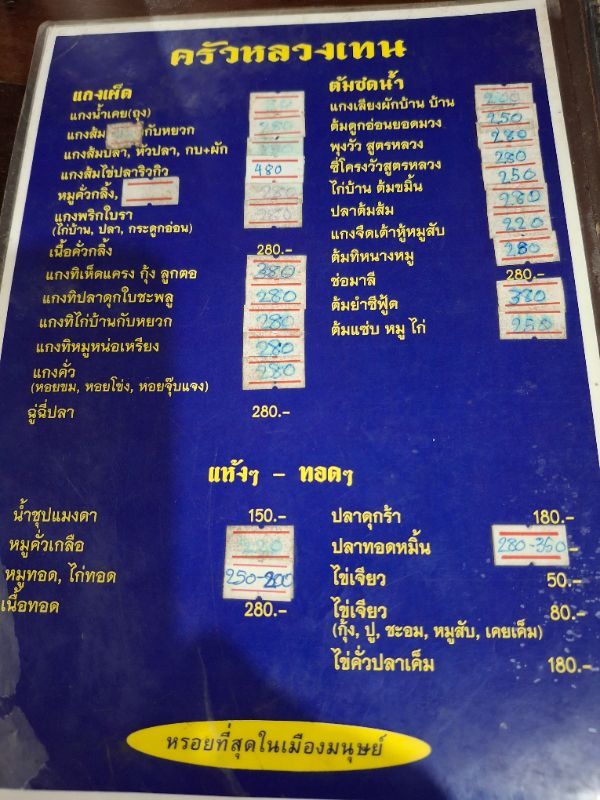 ครัวหลวงเทน
แกงเผ็ด
แกงน้ำเคย(ถุง)
แกงส้ม กับหยวก
แกงส้มปลา, หัวปลา, กบ+ผัก
แกงส้มไข่ปลาริวกิว 480
หมูคั่วกลิ้ง, 280
แกงพริกใบรา 280
(ไก่บ้าน, ปลา, กระดูกอ่อน)
เนื้อคั่วกลิ้ง 280.-
แกงทิเห็ดแครง กุ้ง ลูกตอ 380
แกงทิปลาดุกใบชะพลู 280
แกงทิไก่บ้านกับหยวก 280
แกงทิหมูหน่อเหรียง 280
แกงคั่ว 280
(หอยขม, หอยโข่ง, หอยจุ๊บแจง)
ฉู่ฉี่ปลา 280.-
ต้มซดน้ำ
แกงเลียงผักบ้าน บ้าน 200
ต้มดูกอ่อนยอดมวง 250
พุงวัว สูตรหลวง 280
ซี่โครงวัวสูตรหลวง 280
ไก่บ้าน ต้มขมิ้น 250
ปลาต้มส้ม 280
แกงจืดเต้าหู้หมูสับ 220
ต้มทิหนางหมู 280
ช่อมาลี 280.-
ต้มยำซีฟู้ด 380
ต้มแซ่บ หมู ไก่ 250
แห้งๆ - ทอดๆ
น้ำชุปแมงดา 150.-
หมูคั่วเกลือ
หมูทอด, ไก่ทอด 250-800
เนื้อทอด 280.-
ปลาดุกร้า 180.-
ปลาทอดหมิ้น 280-350 -
ไข่เจียว 50.-
ไข่เจียว 80.-
(กุ้ง, ปู, ชะอม, หมูสับ, เคยเค็ม)
ไข่คั่วปลาเค็ม 180.-
หรอยที่สุดในเมืองมนุษย์